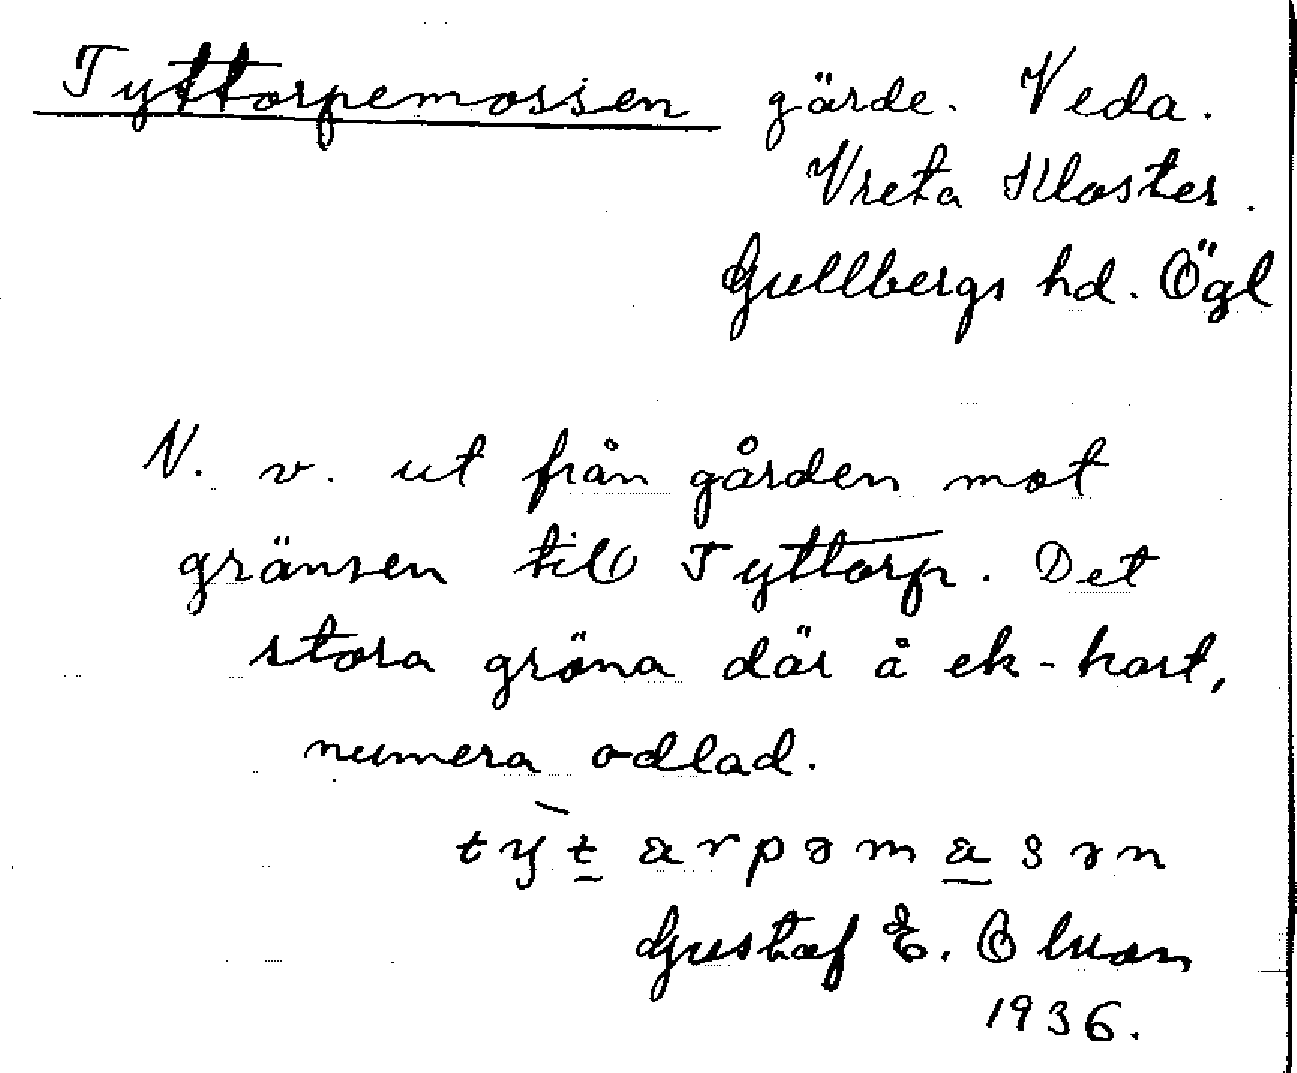 Tyttorpemossen gärde. Veda.
Vreta Kloster.
Gullbergs hd. Ögl
N. v. ut från gården mot
gränsen till Tyttorp. Det
stora gröna där å ek-kart,
numera odlad.
tỳt̲arpəma̲sən
Gustaf E. Olsson
1936.